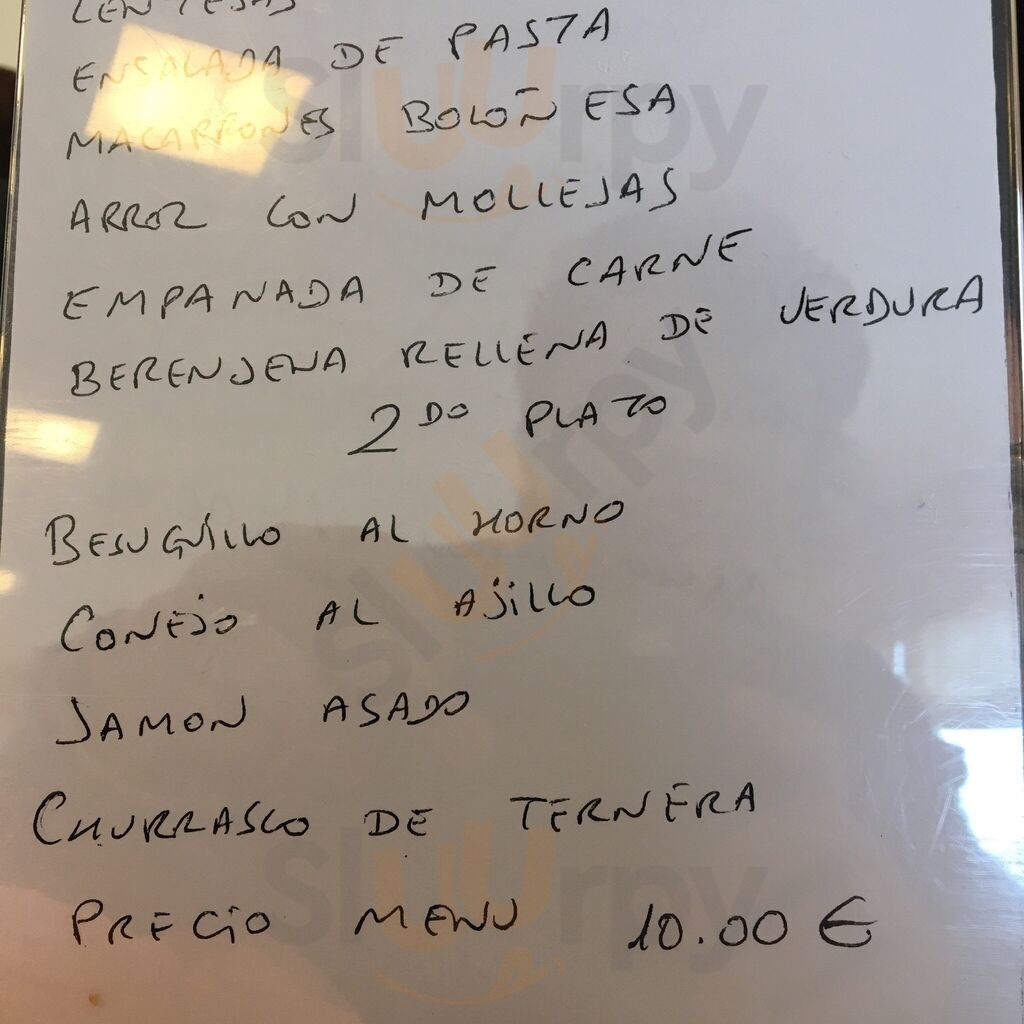 LENTEJAS
ENSALADA DE PASTA
MACARRONES BOLOÑESA
ARROZ CON MOLLEJAS
EMPANADA DE CARNE
BERENJENA RELLENA DE VERDURA
2DO PLATO
BESUGUILLO AL HORNO
CONEJO AL AJILLO
JAMON ASADO
CHURRASCO DE TERNERA
PRECIO MENU 10.00 €
Slurpy
Slurpy
Slurpy